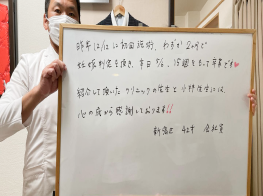 昨年12/12に初回施術、わずか2ヶ月で
妊娠判定を頂き、本日5/6、15週をもって卒業です❤
紹介して頂いたクリニックの先生と小野先生には、
心の底から感謝しております!!
新宿区 42才 会社員